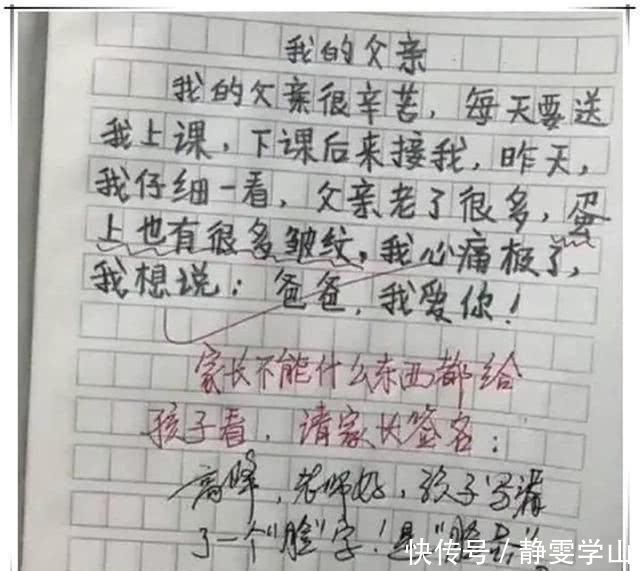 我的父亲
我的父亲很辛苦，每天要送
我上课，下课后来接我，昨天，
我仔细一看，父亲老了很多，蛋
上也有很多皱纹，我心痛极了，
我想说：爸爸，我爱你！
家长不能什么东西都给
孩子看，请家长签名：
高峰，老师好，孩子写错
了一个“脸”字！是“脸上”
快传号／静雯学山